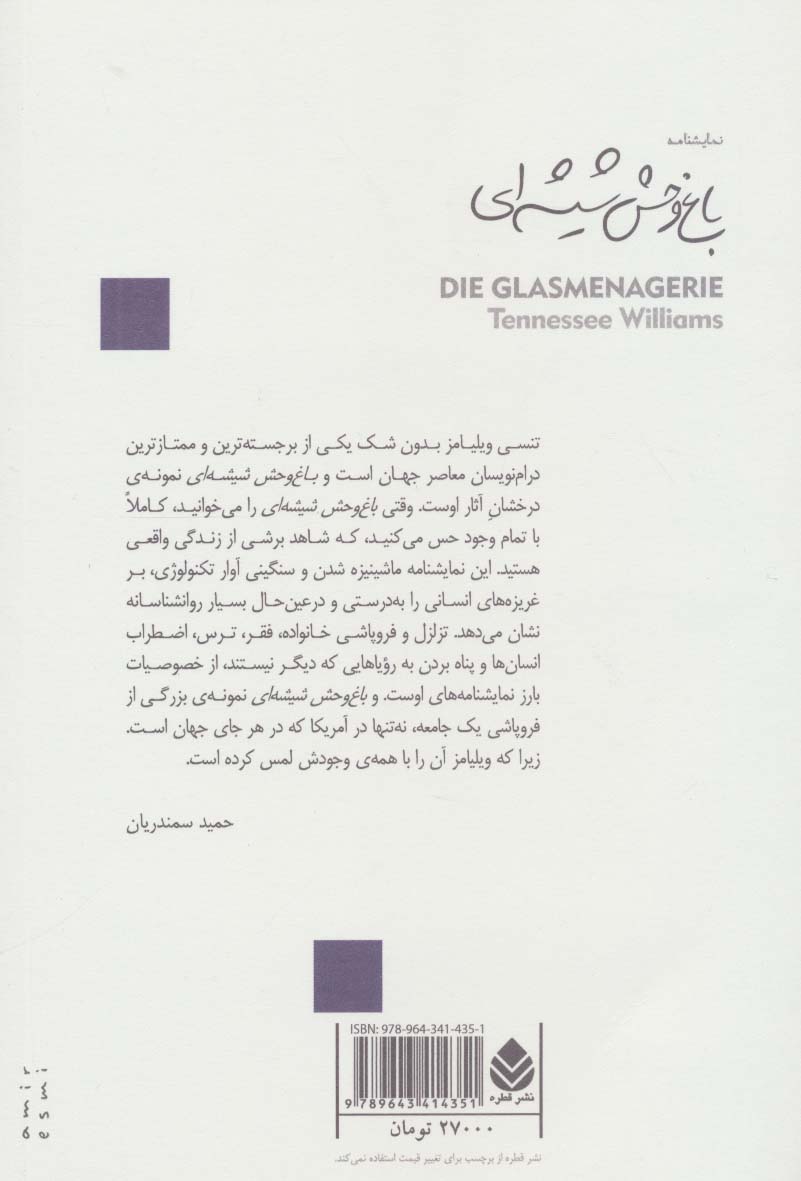 نمایشنامه
باغ‌وحش شیشه‌ای
DIE GLASMENAGERIE
Tennessee Williams
تنسی ویلیامز بدون شک یکی از برجسته‌ترین و ممتازترین
درام‌نویسان معاصر جهان است و باغ‌وحش شیشه‌ای نمونه‌ی
درخشانِ آثار اوست. وقتی باغ‌وحش شیشه‌ای را می‌خوانید، کاملاً
با تمام وجود حس می‌کنید، که شاهد برشی از زندگی واقعی
هستید. این نمایشنامه ماشینیزه شدن و سنگینی آوار تکنولوژی، بر
غریزه‌های انسانی را به‌درستی و درعین‌حال بسیار روانشناسانه
نشان می‌دهد. تزلزل و فروپاشی خانواده، فقر، ترس، اضطراب
انسان‌ها و پناه بردن به رؤیاهایی که دیگر نیستند، از خصوصیات
بارز نمایشنامه‌های اوست. و باغ‌وحش شیشه‌ای نمونه‌ی بزرگی از
فروپاشی یک جامعه، نه‌تنها در آمریکا که در هر جای جهان است.
زیرا که ویلیامز آن را با همه‌ی وجودش لمس کرده است.
حمید سمندریان
ISBN: 978-964-341-435-1
9 789643 414351
نشر قطره
۲۷۰۰۰ تومان
نشر قطره از برچسب برای تغییر قیمت استفاده نمی‌کند.
amir
esmi